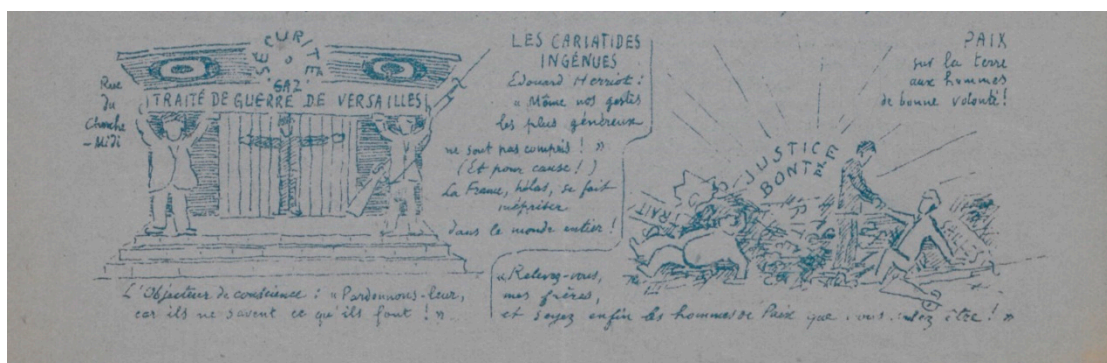 SÉCURITÉ
GAZ
TRAITÉ DE GUERRE DE VERSAILLES
Rue
du
Cherche
-Midi
L'Objecteur de conscience : « Pardonnons-leur,
car ils ne savent ce qu'ils font ! »
LES CARIATIDES
INGÉNUES
Edouard Herriot :
« Même nos gestes
les plus généreux
ne sont pas compris ! »
(Et pour cause !)
La France, hélas, se fait
mépriser
dans le monde entier !
PAIX
sur la terre
aux hommes
de bonne volonté !
JUSTICE
BONTÉ
TRAIT
« Relevez-vous,
mes frères,
et soyez enfin les hommes de Paix que vous être ! »